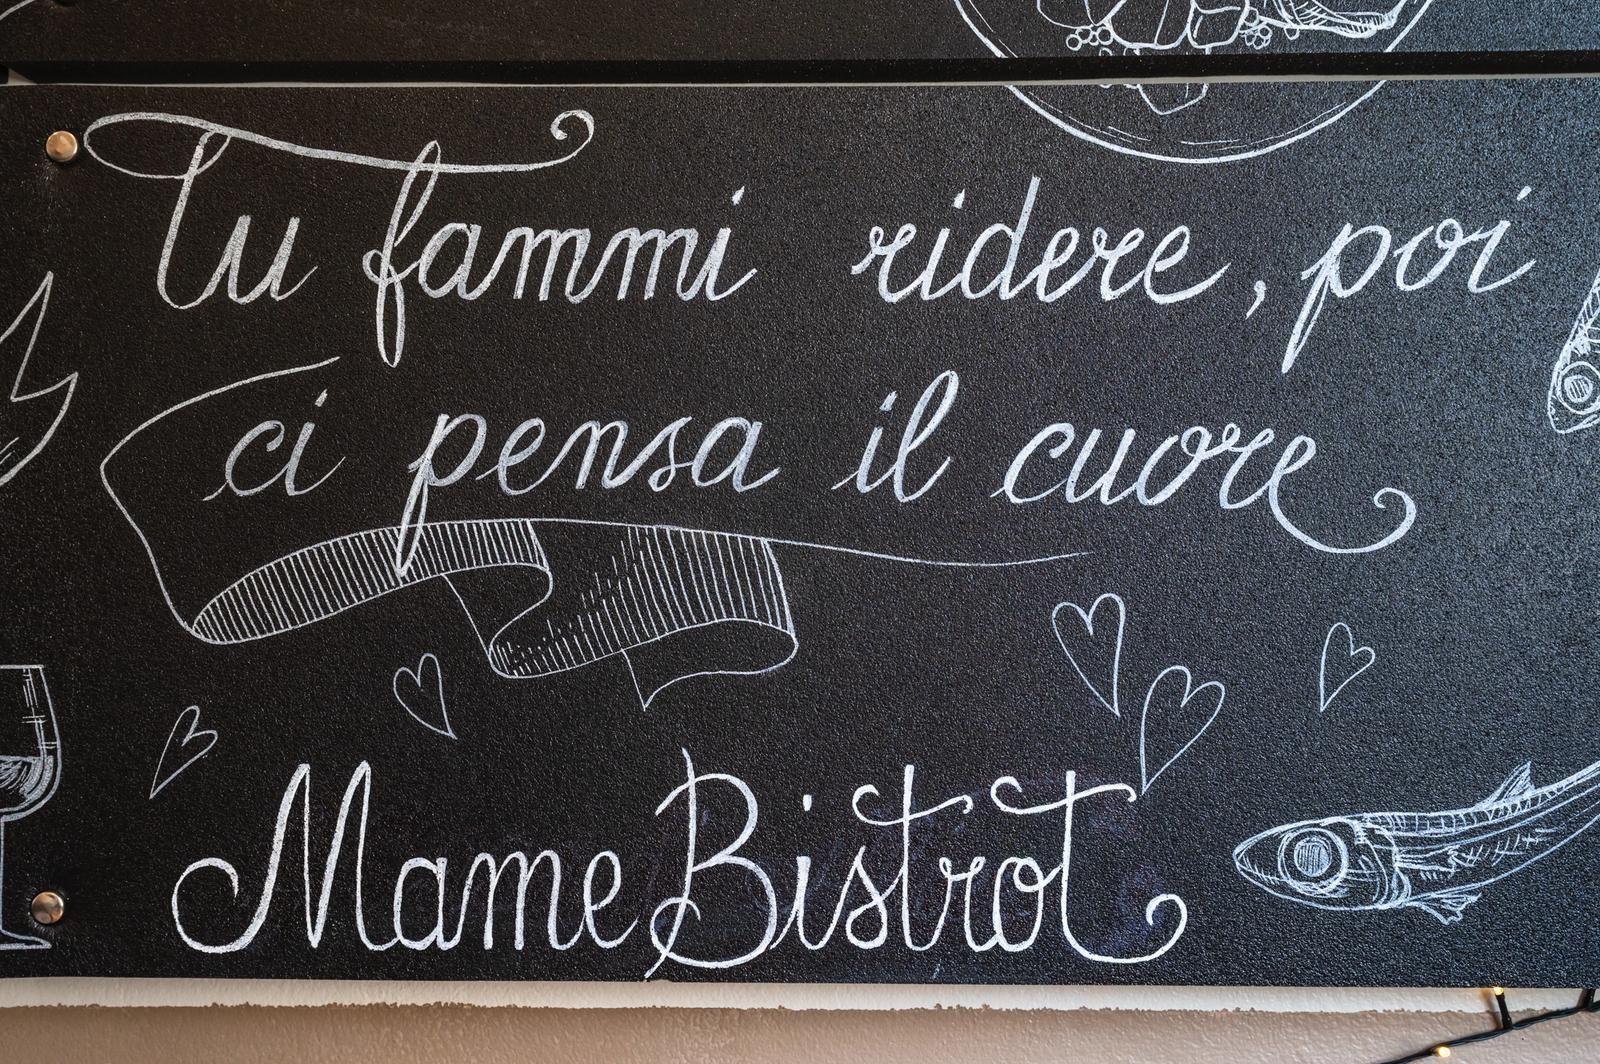 Tu fammi ridere, poi
ci pensa il cuore
Mame Bistrot